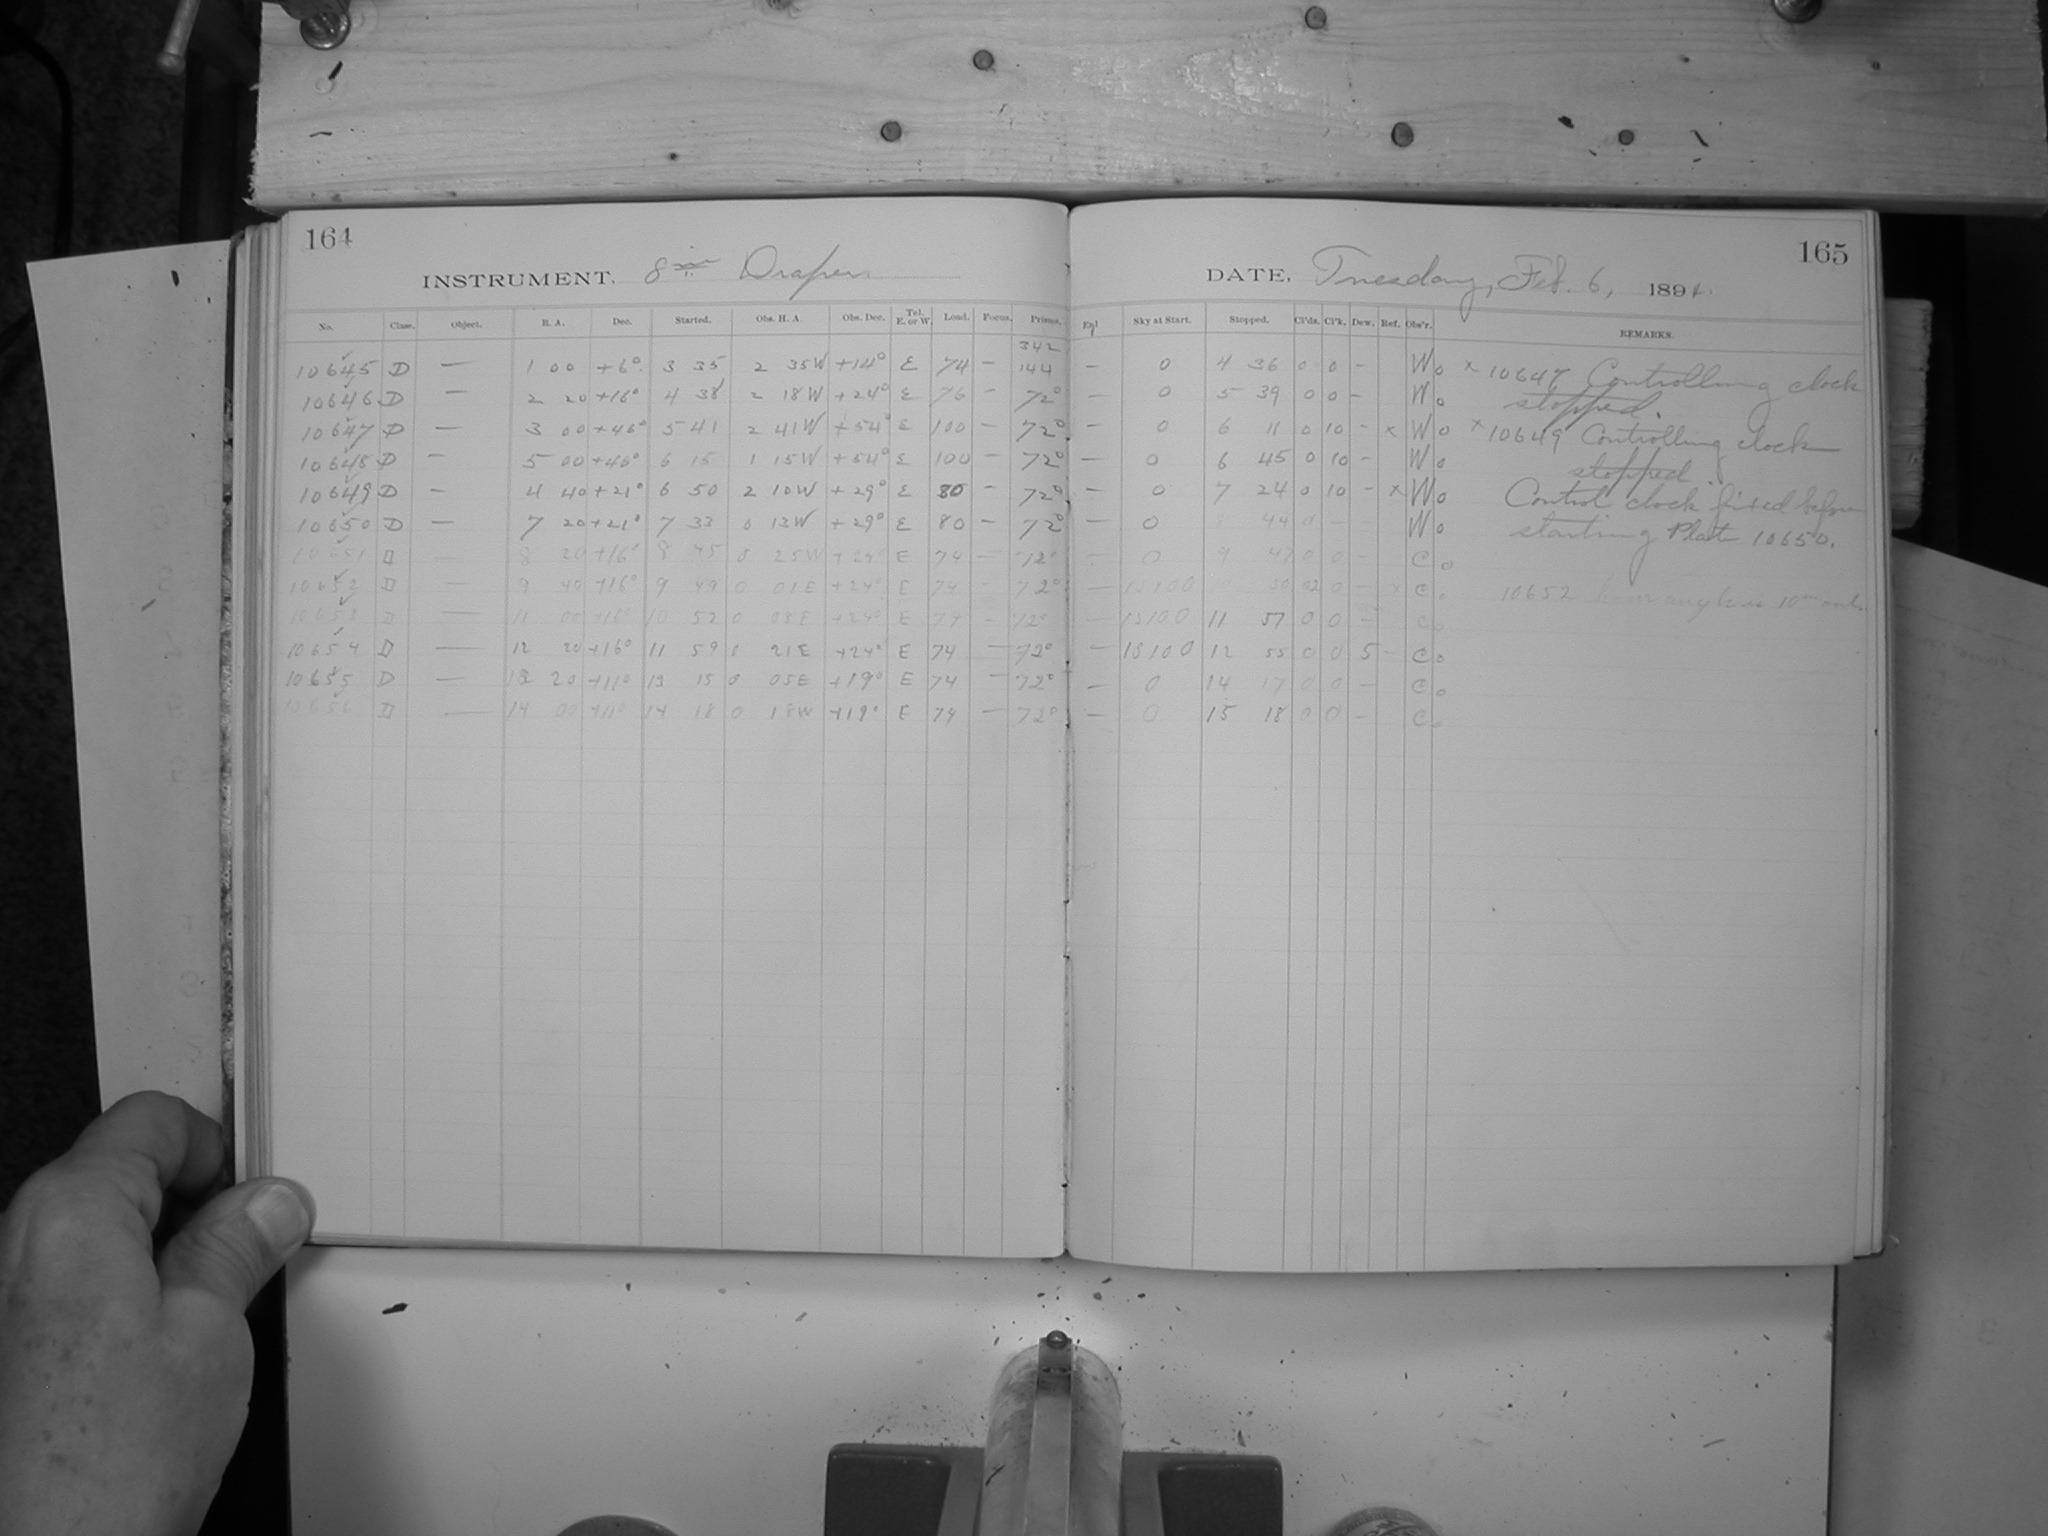 164
INSTRUMENT. 8 in Draper
No. Class. Object. R. A. Dec. Started. Obs. H. A. Obs. Dec. Tel. E. or W. Load. Focus. Prisms.
342
10645 D — 1 00 +6° 3 35 2 35W +14° E 74 — 144
10646 D — 2 20 +16° 4 38 2 18W +24° E 76 — 72°
10647 D — 3 00 +46° 5 41 2 41W +54° E 100 — 72°
10648 D — 5 00 +46° 6 15 1 15W +54° E 100 — 72°
10649 D — 4 40 +21° 6 50 2 10W +29° E 80 — 72°
10650 D — 7 20 +21° 7 33 0 13W +29° E 80 — 72°
10651 D — 8 20 +16° 8 45 0 25W +24° E 74 — 72°
10652 D — 9 40 +16° 9 49 0 01E +24° E 74 — 72°
10653 D — 11 00 +16° 10 52 0 08E +24° E 74 — 72°
10654 D — 12 20 +16° 11 59 0 21E +24° E 74 — 72°
10655 D — 13 20 +11° 13 15 0 05E +19° E 74 — 72°
10656 D — 14 00 +11° 14 18 0 18W +19° E 74 — 72°
165
DATE, Tuesday, Feb. 6, 1894.
Enl Sky at Start. Stopped. Cl'ds. Cl'k. Dew. Ref. Obs'r. REMARKS.
— 0 4 36 0 0 — Wo × 10647 Controlling clock
— 0 5 39 0 0 — Wo stopped.
— 0 6 11 0 10 — × Wo × 10649 Controlling clock
— 0 6 45 0 10 — Wo stopped
— 0 7 24 0 10 — × Wo Control clock fixed before
— 0 8 44 0 — — Wo starting Plate 10650.
— 0 9 47 0 0 — Co
— 15100 50 02 0 — × Co 10652 hour angle is 10m out.
— 15100 11 57 0 0 — Co
— 15100 12 55 0 0 5 — Co
— 0 14 17 0 0 — Co
— 0 15 18 0 0 — Co